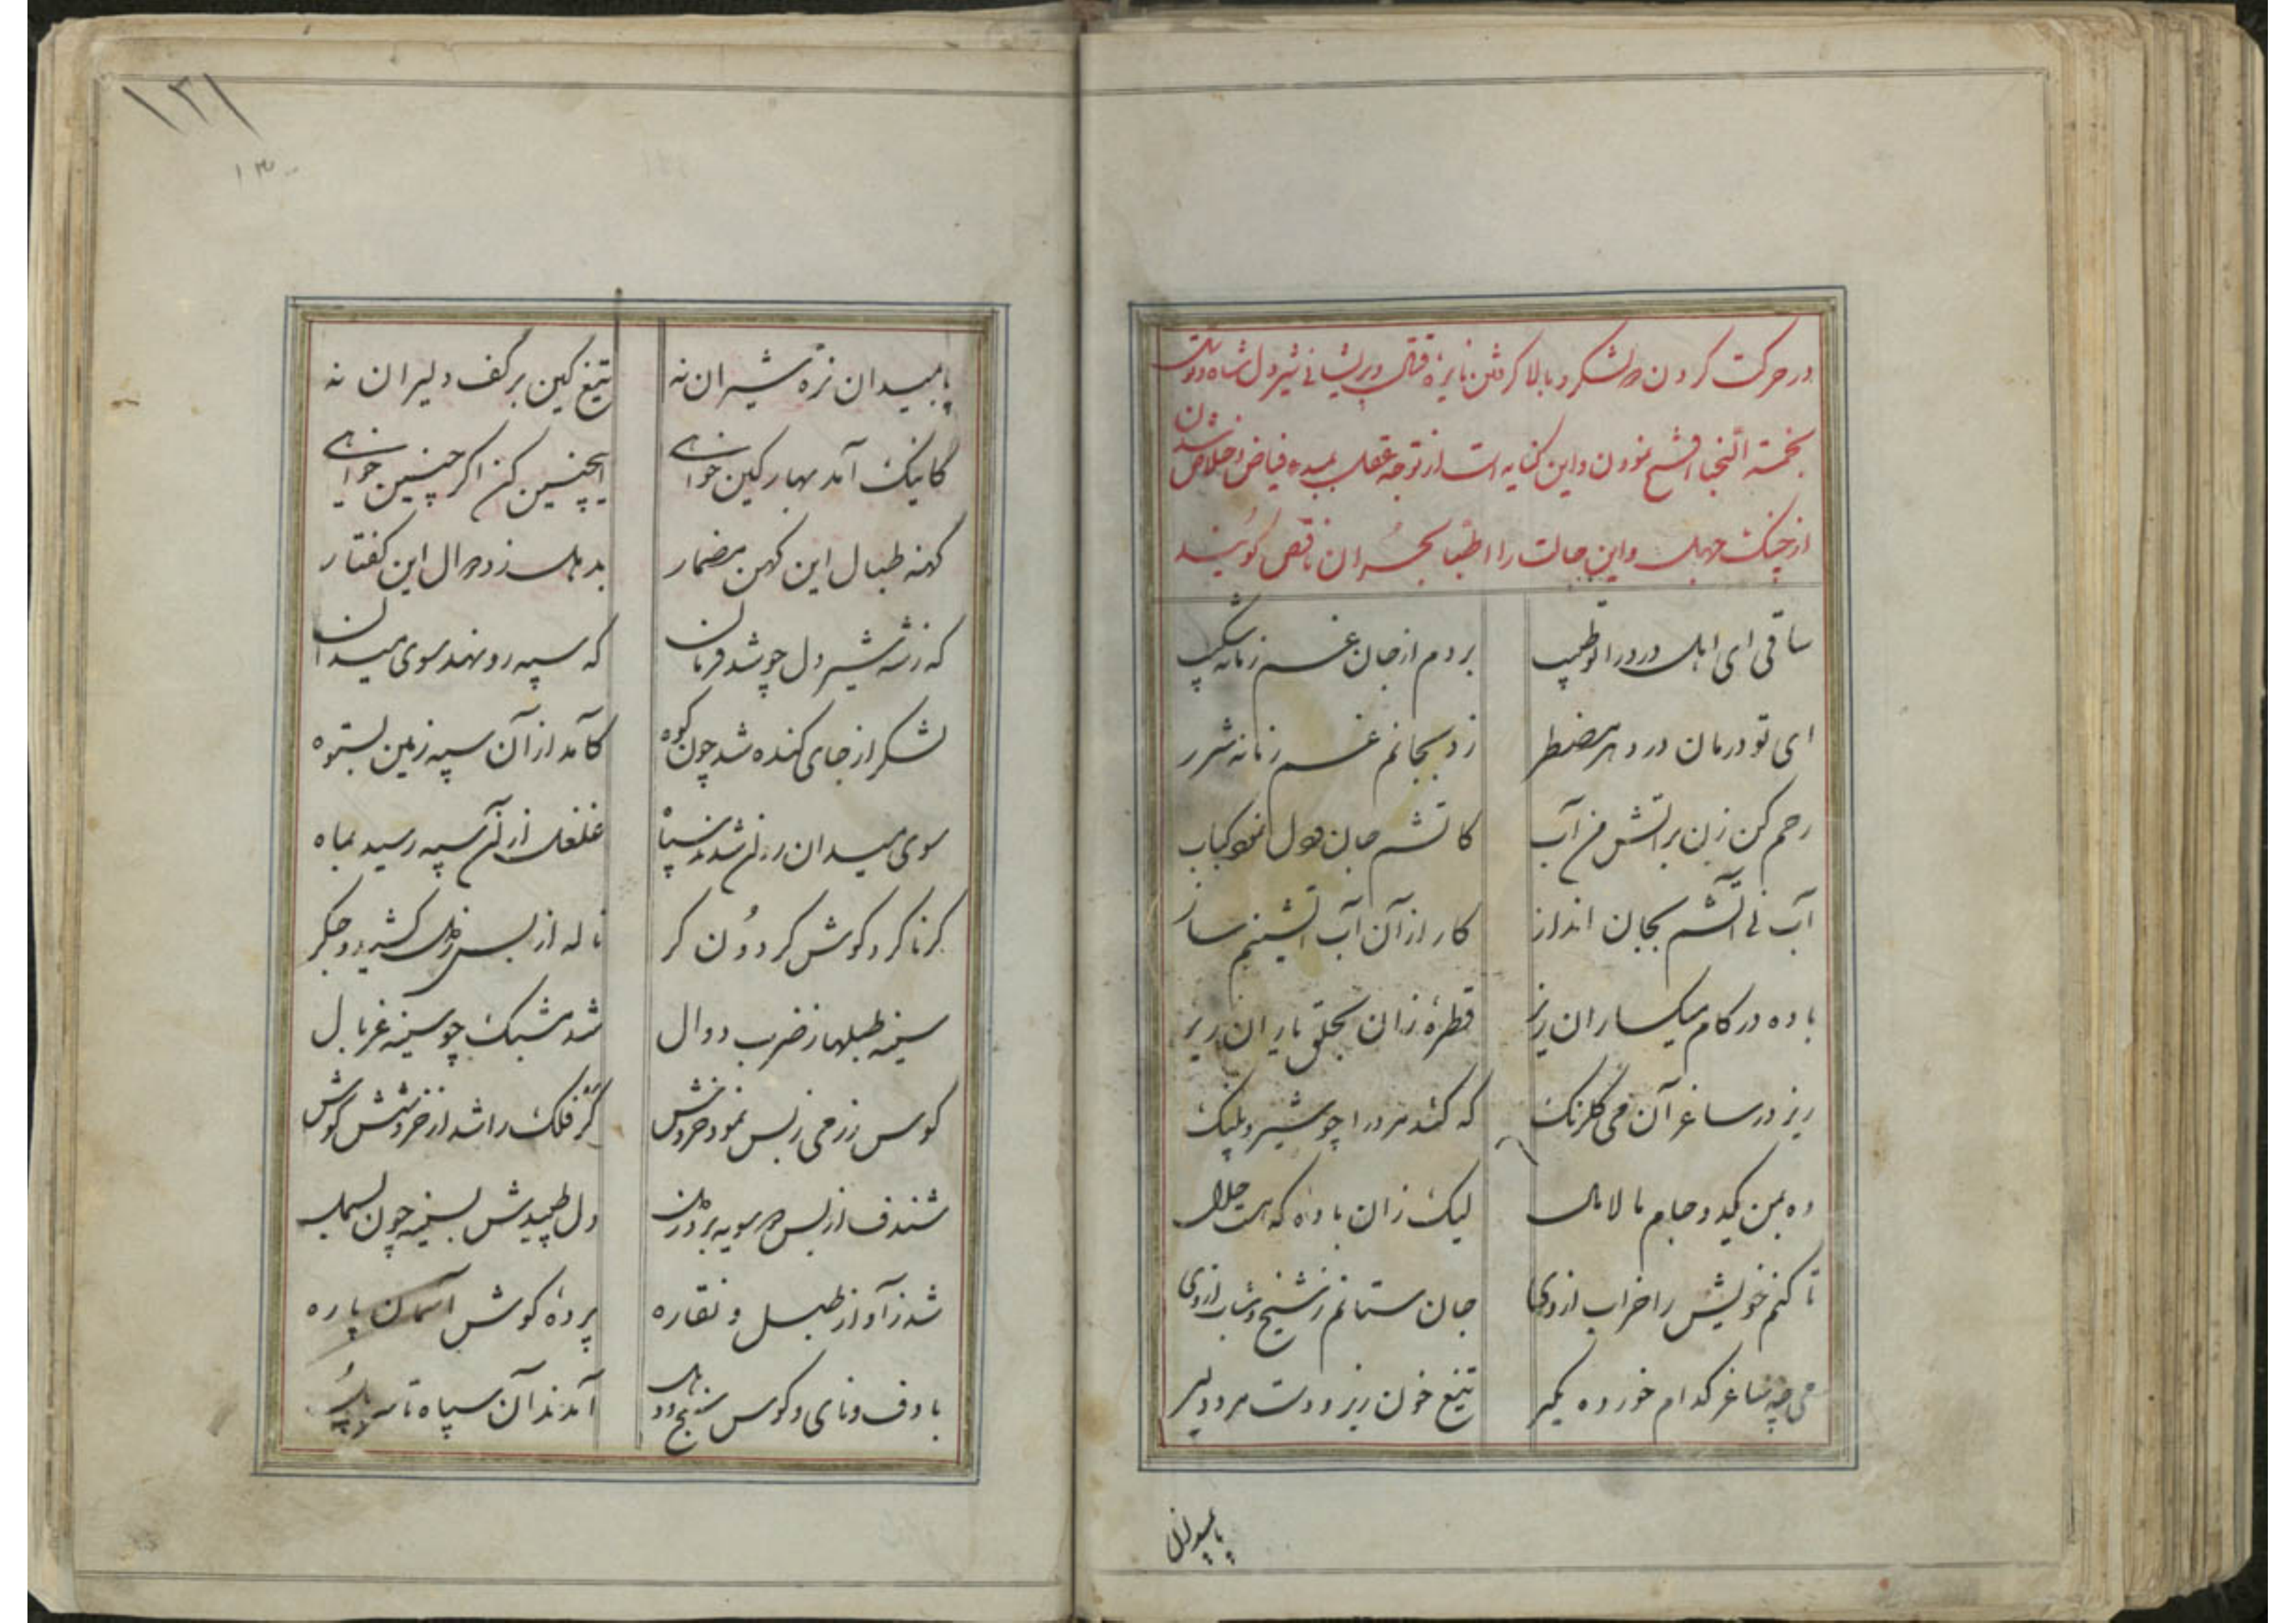 در حرکت کردن دو لشکر و بالا گرفتن نایره قتال و پریشانی شیردل شاه دولت
بخمسة النجبا فتح نمودن و این کنایه است از توجه عقل بمبدء فیاض و خلاص شدن
از چنک جهل و این حالت را اطبا بحران ناقص کویند
ساقی ای اهل درد را تو طبیب بردم از جان غم زمانه شکیب
ای تو درمان درد هر مضطر زد بجانم غم زمانه شرر
رحم کن زن بر آتش من آب کاتشم جان و دل نمود کباب
آب نی آتشم بجان انداز کار از آن آب آتشینم ساز
باده در کام میکساران ریز قطرهٔ زان بحلق یاران ریز
ریز در ساغر آن می گلرنک که کند مرد را چو شیر و پلنک
ده بمن یکدو جام مالامال لیک زان باده که هست حلال
تا کنم خویش را خراب از وی جان ستانم ز شیخ و شاب از وی
می چه ساغر کدام خورده مکیر تیغ خون ریز و دست مرد دلیر
پا بمیدان
۱۳۱
۱۳۰
پا بمیدان نره شیران نه تیغ کین بر کف دلیران نه
کاینک آمد بهار کین خواهی اینچنین کن اکر چنین خواهی
کهنه طبال این کهن مضمار بدهل زد دوال این کفتار
که ز شه شیردل چو شد فرمان که سپه رو نهند سوی میدان
لشکر از جای کنده شد چون کوه کامد از آن سپه زمین بستوه
سوی میدان روان شدند سپاه غلغل از آن سپه رسید بماه
کرنا کرد کوش کردون کر ناله از بس ز دل کشید و جکر
سینه طبلها ز ضرب دوال شد مشبک چو سینه غربال
کوس رزمی ز بس نمود خروش کر فلک را شد از خروشش کوش
شندف از بس دو سویه برد دهل دل طپیدش بسینه چون بسمل
شد ز آواز طبل و نقاره پردهٔ کوش آسمان پاره
با دف و نای و کوس و سنج و دهل آمدند آن سپاه تا سر پل